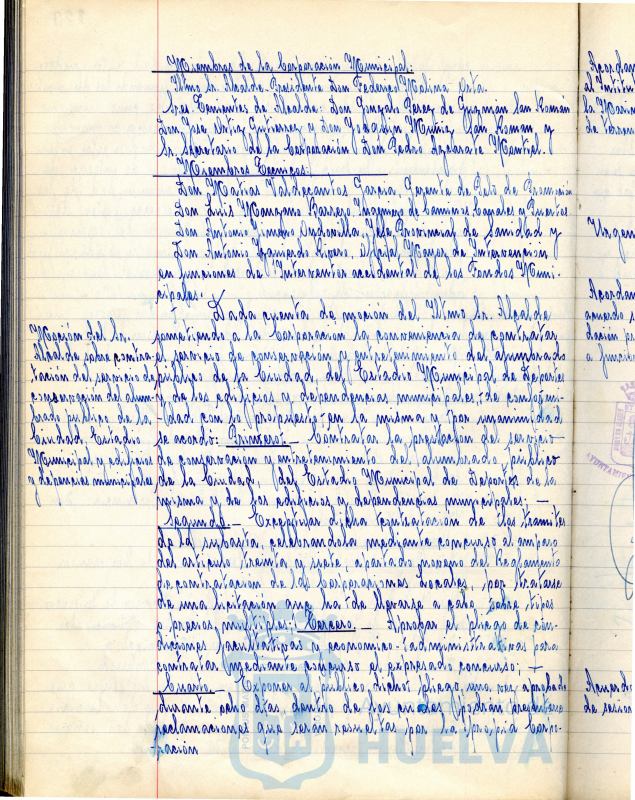 Miembros de la Corporación Municipal:
Iltmo Sr. Alcalde Presidente Don Federico Molina Orta.
Sres. Tenientes de Alcalde: Don Gonzalo Perez de Guzmán San Román
Don José Ortiz Gutierrez y Don Joaquin Muñiz San Roman, y
Sr. Secretario de la Corporación Don Pedro
Miembros Tecnicos:
Don Matias Valdecantos Garcia, Gerente de Polo de Promoción
Don Luis Manzano Barrero, Ingeniero de Caminos Canales y Puertos
Don Antonio Gimeno Jefe Provincial de Sanidad y
Don Antonio Izquierdo Rivero, Oficial Mayor de Intervención
en funciones de Interventor accidental de los Fondos Muni-
cipales.
Moción del Sr.
Alcalde sobre contra-
tación del servicio de
conservación del alum-
brado público de la
Ciudad, Estadio
Municipal y edificios
y dependencias municipales
Dada cuenta de moción del Iltmo Sr. Alcalde
sometiendo a la Corporación la conveniencia de contratar
el servicio de conservación y entretenimiento del alumbrado
público de la Ciudad, del Estadio Municipal de Deportes
y de los edificios y dependencias municipales; de conformi-
dad con lo propuesto en la misma y por unanimidad
se acordó: Primero.- Contratar la prestación del servicio
de conservación y entretenimiento de alumbrado público
de la Ciudad, del Estadio Municipal de Deportes de la
misma y de los edificios y dependencias municipales; -
Segundo.- Exceptuar dicha contratación de los tramites
de la subasta, celebrandola mediante concurso al amparo
del articulo treinta y siete, apartado noveno del Reglamento
de contratación de las Corporaciones Locales, por tratarse
de una licitación que ha de llevarse a cabo sobre tipos
o precios multiples; Tercero.- Aprobar el pliego de con-
diciones facultativas y economico-administrativas para
contratar mediante concurso el expresado concurso; -
Cuarto.- Exponer al público dicho pliego una vez aprobado
durante ocho días, dentro de los cuales podrán presentarse
reclamaciones que serán resueltas por la propia Corpo-
ración
HUELVA
Acordan
al Institu
de terren
Urgen
Acordan
acuerdo s
dación p
a funcio
AYUNTAMI
Acuerdo
de sesion